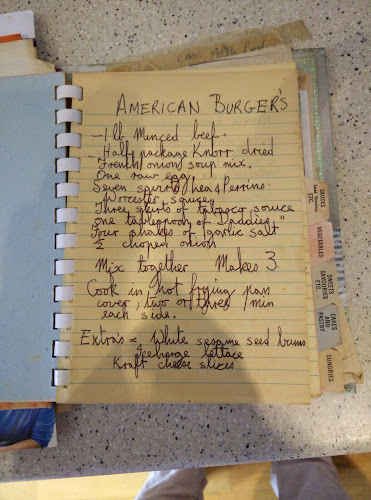 CHOC APPLE Pud
AMERICAN BURGER'S
- 1 lb Minced beef.
- Half package Knorr dried
French onion soup mix.
One raw egg.
Seven squirts, Lea & Perrins.
Worcester sauce.
Three squirts of tabasco sauce
One tablespoon of "Daddies"
Four shakes of garlic salt
½ choped onion
Mix together Makes 3
Cook in hot frying pan
cover, two or three /min
each side.
Extras = 4 White sesame seed buns
Iceberge lettace
Kraft cheese slices
SAUCES
ETC.
VEGETABLES
SWEETS
SAVOURIES
ETC
CAKES
AND
PASTRY
SUNDRIES